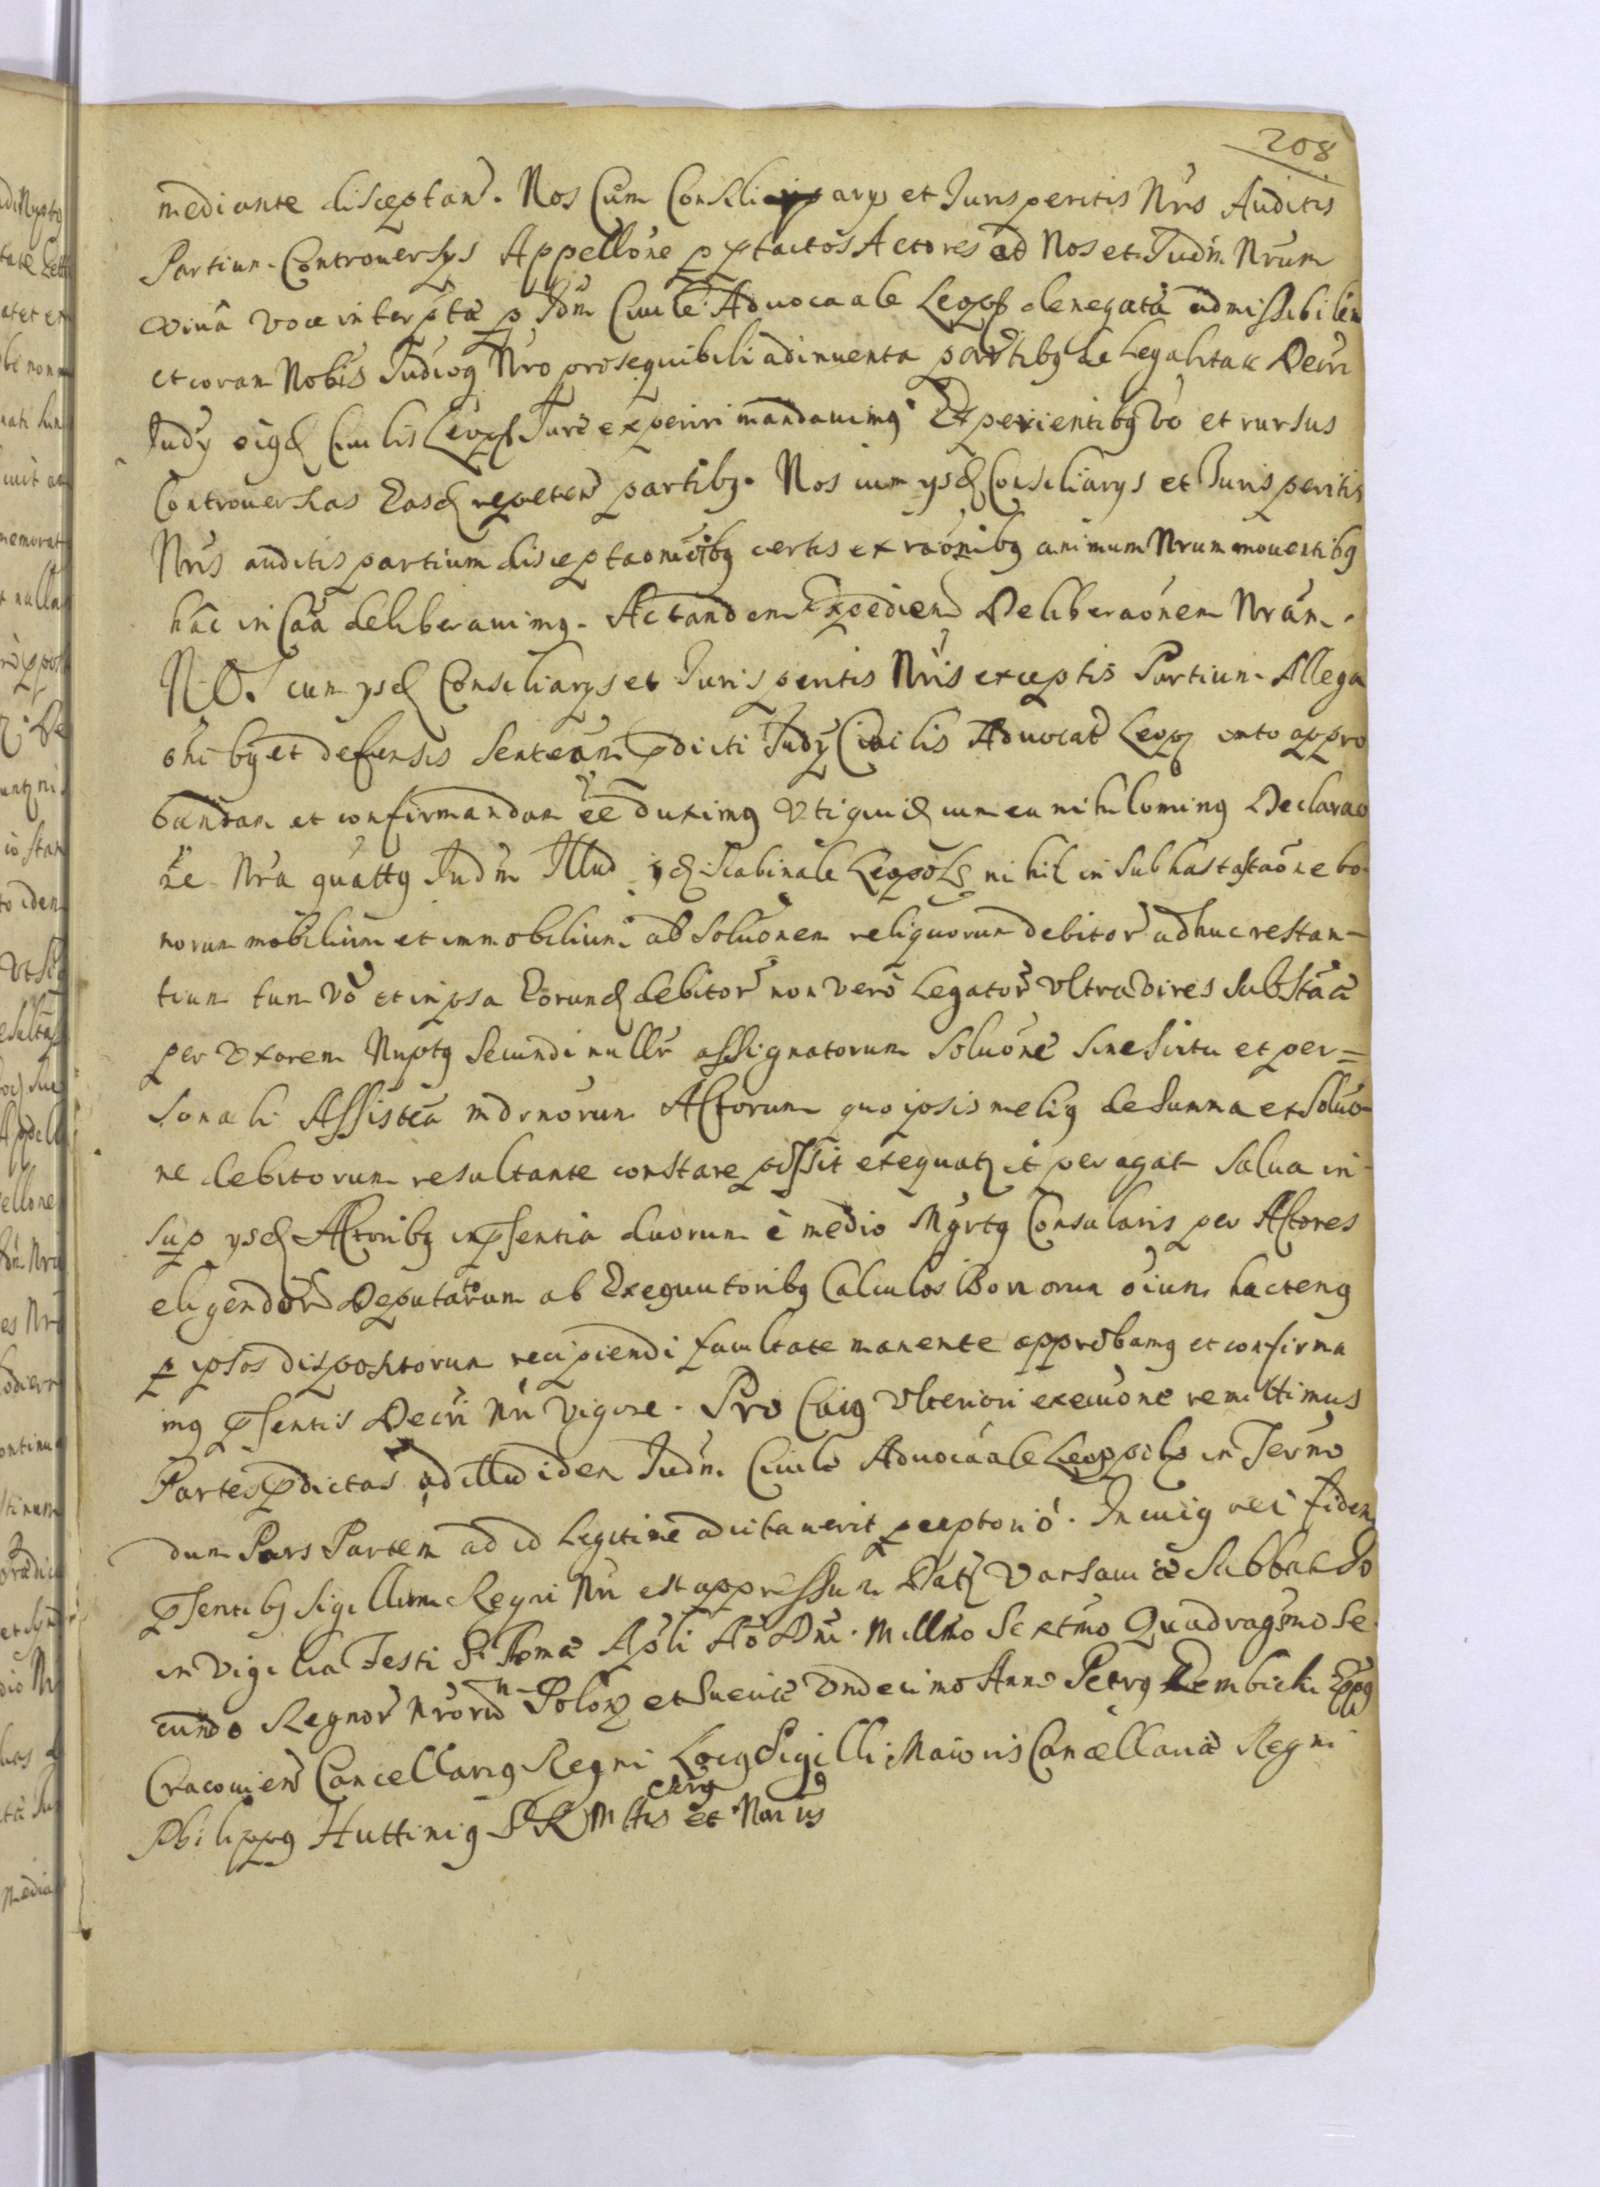 208
mediante disceptan̄. Nos Cum Consiliarys et Jurisperitis Nr̄is Auditis
Partium Controuersys Appellōne p ptactos Actores ad Nos et Judm̄ Nrūm
viuâ voce interptā p Jdm̄ Ciuile Aduocaāle Leopol denegatā admissibilem
et coram Nobis Judicioq Nr̄o prosequibili adinuenta partibq de Legalitate Decrī
Judy eiqd Ciuilis Leopol Jure experiri mandauimq Experientibq vō et rursus
Controuersias Easd repeten̄ partibq. Nos cum ysd Consiliarys et Juris peritis
Nr̄is auditis partium disceptaōnibq certis ex raōnibq animum Nrūm mouentibq
hāc in Caā deliberauimq. Ac tandem Expedien̄ Deliberaōnem Nrām.
NOS cum ysd Consiliarys et Jurisperitis Nr̄is exceptis Partium Allega
ōnibq et defensis Senteām pdicti Judy Ciuilis Aduocat Leopol in toto appro
bandam et confirmandam eē duximq Vti quid cum ea nihilominq Declarao
ne Nrā quattq Judm̄ Illud yd Scabinale Leopol nihil in subhastataōne bo
norum mobilium et immobilium ab Soluōnem reliquorum debitor̄ adhuc restan-
tium tum vō et in ipsa Eorund debitor̄ non vero Legator̄ Vltra vires Substāa
per Vxorem Nuptq Secundi nullr̄ assignatorum Soluōne sine Scitu et per=
sonali Assistēa mdrnorum Actorum quo ipsis meliq de Summa et Soluō
ne debitorum resultante constare possit exequatq et peragat Salua in-
sup ysd Actoribq in psentia duorum è medio Mgrtq Consularis per Actores
eligendor̄ Deputatorum ab Exequutoribq Calculos Bonorum ōium hactenq
p ipsos dispositorum recipiendi facultate manente approbamq et confirma
imq psentis Decrī Nrī Vigore. Pro Cuiq Vlteriori execuōne remittimus
Partes pdictas ad illud idem Judm̄ Ciuile Aduocaāle Leopol in Termō
dum Pars Partem ad id Legitime adcitauerit peremptorio. In cuiq rei fidem
psentibq Sigillum Regni Nrī est appressum Datq Varsauiæ Sabbatho
in Vigilia Festi S. Thomæ Apli Aō Dni Millmo Sextmo Quadragsmo Se
cundo Regnor̄ Nror̄ Poloq et Sueciæ Vndecimo Anno Petrq Gembicki Eppq
Cracouien̄ Cancellariq Regni Locq Sigilli Maioris Cancellariæ Regni
Philippq Huttiniq SRMttis et Noriq